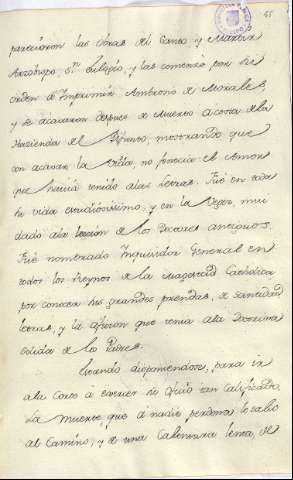 65
parecieron las obras del Santo y Martir
Arzobispo Sn Eulogio, y las comenzo por su
orden á Imprimir Ambrosio de Morales,
y se acavaron despues de Muerto acosta de la
Hacienda del Difunto, mostrando que
con acavar la vida, no fenecia el Amor
que havia tenido alas letras. Fué en toda
su vida estudiosissimo, y en la Vejez, mui
dado ala leccion de los Doctores antiguos.
Fué nombrado Inquisidor General en
todos los Reynos de la Magestad Catholica
por conocer sus grandes prendas, de Santidad
letras, y la aficion que tenia ala Doctrina
solida de los Padres.
Estando disponiendose, para ir
ala Corte a exercer su oficio tan Calificado
La Muerte, que a nadie perdona le salio
al Camino, y de una Calentura lenta, de